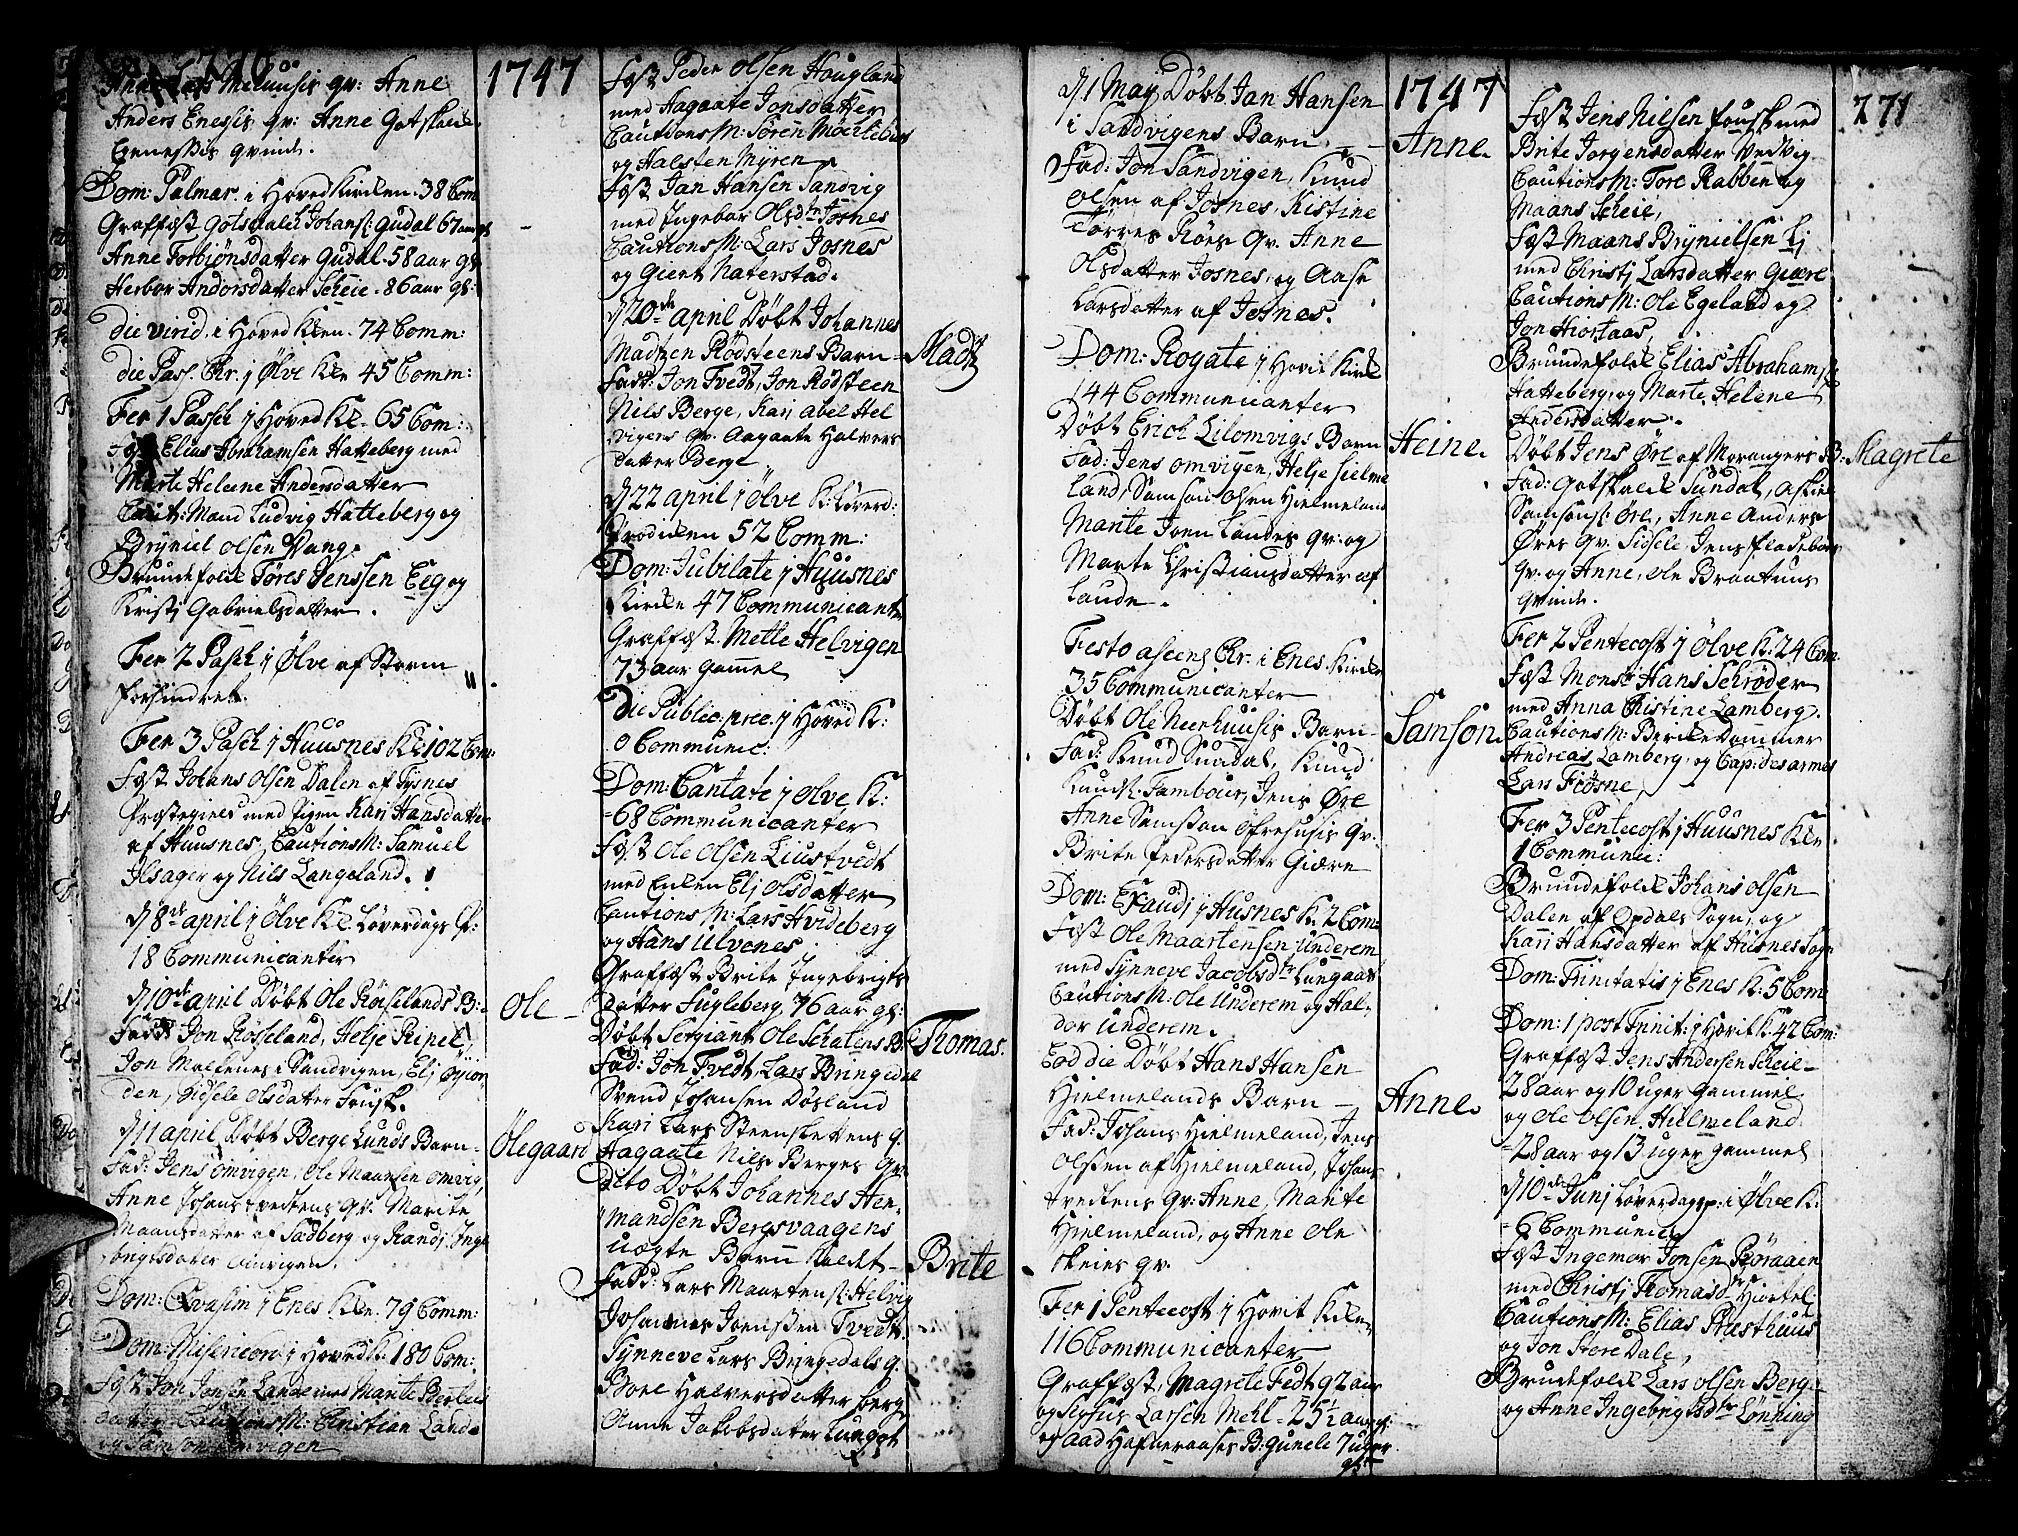 1747
Anders Enesis qv: Anne Gotskalk
Qvinde.
Dom: Palmar. i Hovedkirken. 38 Com
Graffæst Gotskalch Johans: Gudal 67 aar gl
Anne Torbiønsdatter Gudal. 58 aar gl.
Herbor Andorsdatter Scheie. 86 aar gl:
die virid. i Hoved Klen. 74 Comm:
die Pas. Chr. j Ølve Kle 45 Comm:
Fer 1 Pasch j Hoved Kl. 65 Com:
Fæst Elias Abrahamsen Hatteberg med
Marte Helene Andersdatter
Caut: Mænd Ludvig Hatteberg og
Bryniel Olsen Vang.
Brudefolk Tøres Jenssen Eeg og
Kristj Gabrielsdatter.
Fer 2 Pasch j Ølve af Storm
forhindret.
Fer 3 Pasch j Huusnes Kl 102 Com:
Fæst Johans Olsen Dalen af Tysnes
Præstegield med Pigen Kari Hansdatter
af Huusnes, Cautions M: Samuel
Ilsager og Nils Langeland.
d 8de april j Ølve Kl. Løverdags Pr:
18 Communicanter
d 10de april Døbt Ole Røsselands B: Ole
Fadd: Jon Røsseland, Helje Ripel,
Jon Malkenes i Sandvigen, Elj Øyior
den, Sidsele Olsdatter Fousk.
d 11 april Døbt Berge Lunds Barn Olegaard
Fad: Jens Omvigen, Ole Maansen Omvig,
Anne Johans Tvedtens qv. Marite
Maansdatter af Sadberg og Randj Inge
brigtsdatter Omvigen.
Dom: Qvasim j Enes Klen: 79 Comm:
Dom: Misericord j Hoved K: 180 Com:
Fæst Jon Jonsen Lande med Marite
datter Cautions M: Christian Lande
og Samson Omvigen
Fæst Peder Olsen Hougland
med Hagaate Jonsdatter
Cautions M: Søren Møelebus
og Halsten Myren
Fæst Jan Hansen Sandvig
med Ingebor Olsdtr Josnes
Cautions M: Lars Josnes
og Giert Naterstad.
d 20de april Døbt Johannes
Madtzen Rødsteens Barn Madtz
Fadd: Jon Tvedt, Jon Rødsteen
Nils Berge, Kari Abel Hel
vigens qv. Aagaate Halvers
datter Berge
d 22 april j Ølve K: Løverd:
Prædiken 52 Comm:
Dom: Jubilate j Huusnes
Kirke 47 Communicanter
Graffæst. Mette Helvigen
73 aar gamel
Die Public: prec. j Hoved K:
0 Communic:
Dom: Cantate j Ølve K:
68 Communicanter
Fæst Ole Olsen Liustvedt
med Enken Elj Olsdatter
Cautions M: Lars Hvideberg
og Hans Ulvenes
Graffæst Brite Ingebrigts
datter Fugleberg, 76 aar gl:
Døbt Sergiant Ole Schalens B: Thomas.
Fad: Jon Tvedt, Lars Bringedal
Svend Johansen Døsland
Kari Lars Steenslettens q.
Hagaate Nils Berges qv.
Dito Døbt Johannes Her-
mandsen Bergsvaagens
uægte Barn kaldt Brite
Fadd: Lars Maartens: Helvig
Johannes Joenssen Tvedt
Synneve Lars Bringedals q.
Boel Halversdatter Berge
Anne Jakobsdatter Lungot
d 1 Maj Døbt Jan Hansen
i Sandvigens Barn Anne.
Fad: Jon Sandvigen, Knud
Olsen af Josnes, Kistine
Torres Røes qv. Anne
Olsdatter Josnes, og Aase
Larsdatter af Josnes.
Dom: Rogate j Hovit Kirke
144 Communicanter
Døbt Erich Lilomvigs Barn Heine.
Fad: Jens Omvigen, Helje Hielme
land, Samson Olsen Hielmeland
Marite Joen Landes qv. og
Marte Christiansdatter af
Lande.
Festo ascens Chr. i Enes Kirke
35 Communicanter
Døbt Ole Neerhuusis Barn Samson.
Fad: Knud Sundal, Knud
Knuds. Tambour, Jens Øre
Anne Samson Øfrehusis qv.
Brite Pedersdatter Giære
Dom: Exaudj j Husnes K: 2 Com:
Fæst Ole Maartensen Underem
med Synneve Jacobsdtr Lungaar
Cautions M: Ole Underem og Hal-
dor Underem.
Eod die Døbt Hans Hansen
Hielmelands Barn Anne.
Fad: Johans Hielmeland, Jens
Olssen af Hielmeland, Johans
Tvedtens qv: Anne, Marite
Hielmeland, og Anne Ole
Skeies qv.
Fer 1 Pentecost j Hovit Klen
116 Communicanter
Graffæst, Magrete Tedt 92 aar
og Larsen Mehl 25½ aar gl:
og Aad B: Gunele 7 uger
gl:
1747
271
Fæst Jens Nilsen Fousk med
Brite Jorgensdatter Vedvig
Cautions M: Tore Rabben og
Maans Scheie,
Fæst Maans Brynielsen Ej
med Christj Larsdatter Giære
Cautions M: Ole Egeland og
Jon Hiortaas,
Brudefolk Elias Abrahams:
Hatteberg, og Marte Helene
Andersdatter.
Døbt Jens Øre af Morangers B: Magrete
Fad: Gotskalk Sundal, Askiel
Samsons: Øre, Anne Anders
Øres qv. Sidsele Jens Fladebøes
qv. og Anne, Ole Braatuns
qvinde.
Fer 2 Pentecost j Ølve K: 24 Com
Fæst Monsr Hans Schrøder
med Anna Cristine Lamberg.
Cautions M: BerideDommer
Andreas Lamberg, og Cap: desarmes
Lars Fiosne,
Fer 3 Pentecost j Huusnes Kle
1 Communic:
Brudefolk Johans Olsen
Dalen af Opdals Sogn, og
Kari Hansdatter af Husnes Sogn
Dom: Trinitatis j Enes K: 5 Com
Dom: 1 post Trinit: j Hovit K 42 Com:
Graffæst Jens Andersen Scheie
28 aar og 10 uger Gammel
og Ole Olsen, Hielmeland
28 aar og 13 uger gammel
d 10de Junj Løverdagsp: i Ølve K:
6 Communic
Fæst Ingemor Jonsen Røraaen
med Christj Thomasdtr Hiortel
Cautions M: Elias Præsthuus
og Jon Store Dale,
Brudefolk Lars Olsen Berg-
og Anne Ingebrigtsdtr Lønning